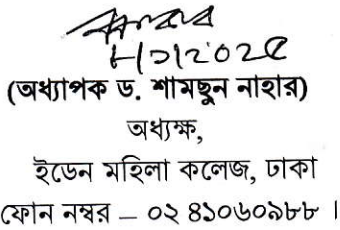 (অধ্যাপক ড. শামছুন নাহার)
অধ্যক্ষ,
ইডেন মহিলা কলেজ, ঢাকা
ফোন নম্বর – ০২ ৪১০৬০৯৮৮ ।